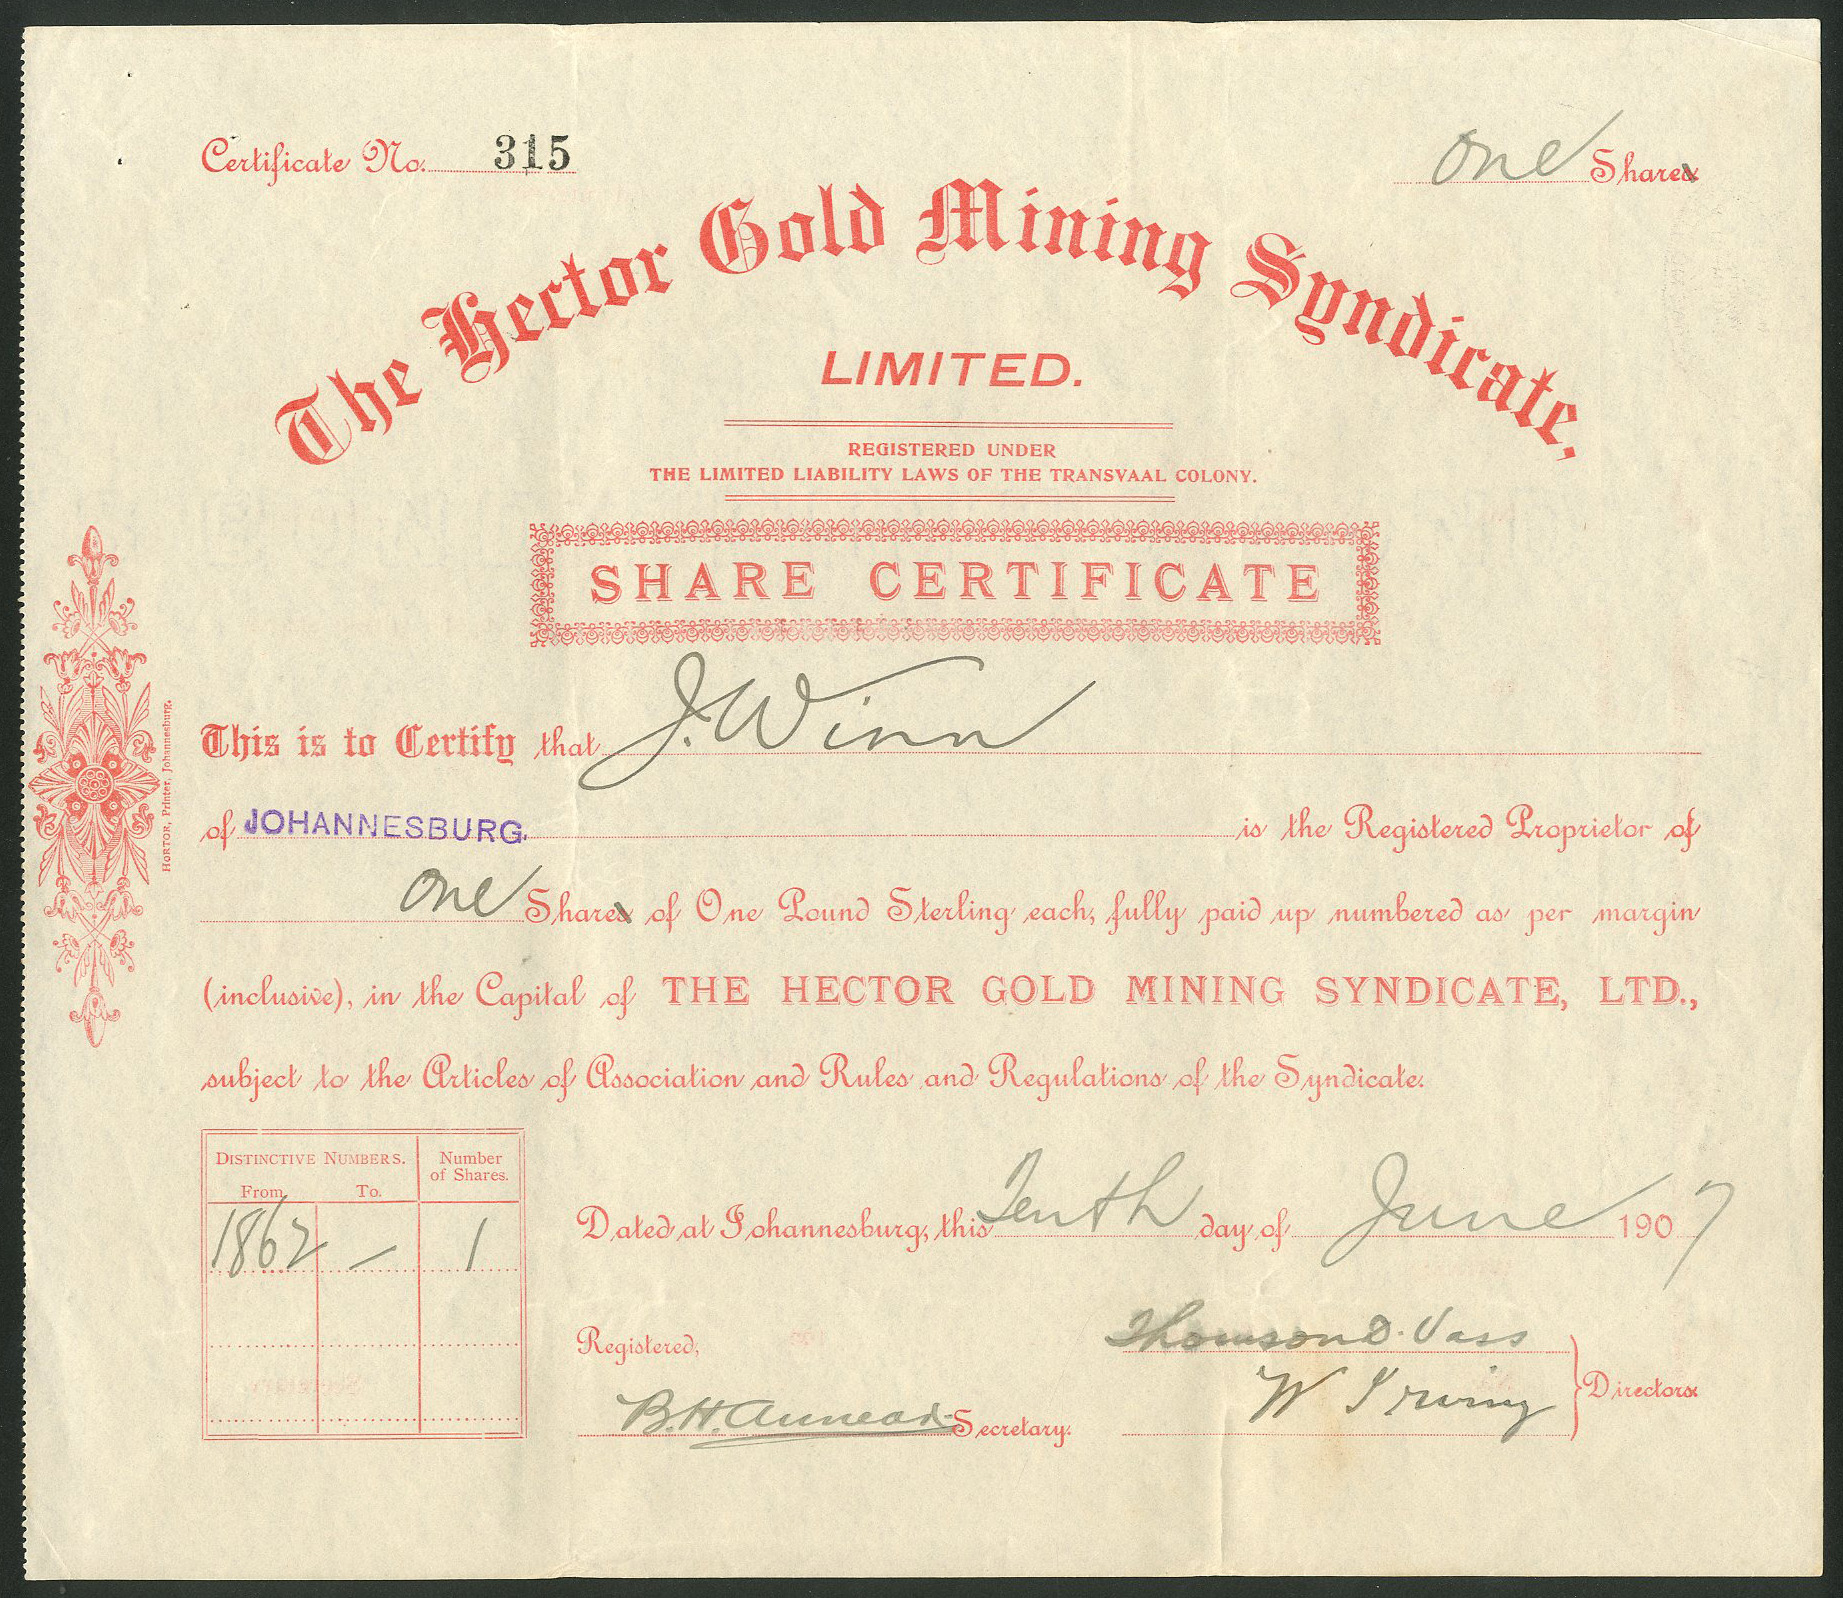 Certificate No. 315
One Shares
The Hector Gold Mining Syndicate,
LIMITED.
REGISTERED UNDER
THE LIMITED LIABILITY LAWS OF THE TRANSVAAL COLONY.
SHARE CERTIFICATE
This is to Certify that J. Winn
of JOHANNESBURG. is the Registered Proprietor of
One Shares of One Pound Sterling each, fully paid up numbered as per margin
(inclusive), in the Capital of THE HECTOR GOLD MINING SYNDICATE, LTD.,
subject to the Articles of Association and Rules and Regulations of the Syndicate.
HORTOR, Printer, Johannesburg.
DISTINCTIVE NUMBERS. Number of Shares.
From To.
1862 — 1
Dated at Johannesburg, this Tenth day of June 1907
Registered,
Thomson D. Vass
W Irving
Directors
B.H. Secretary.